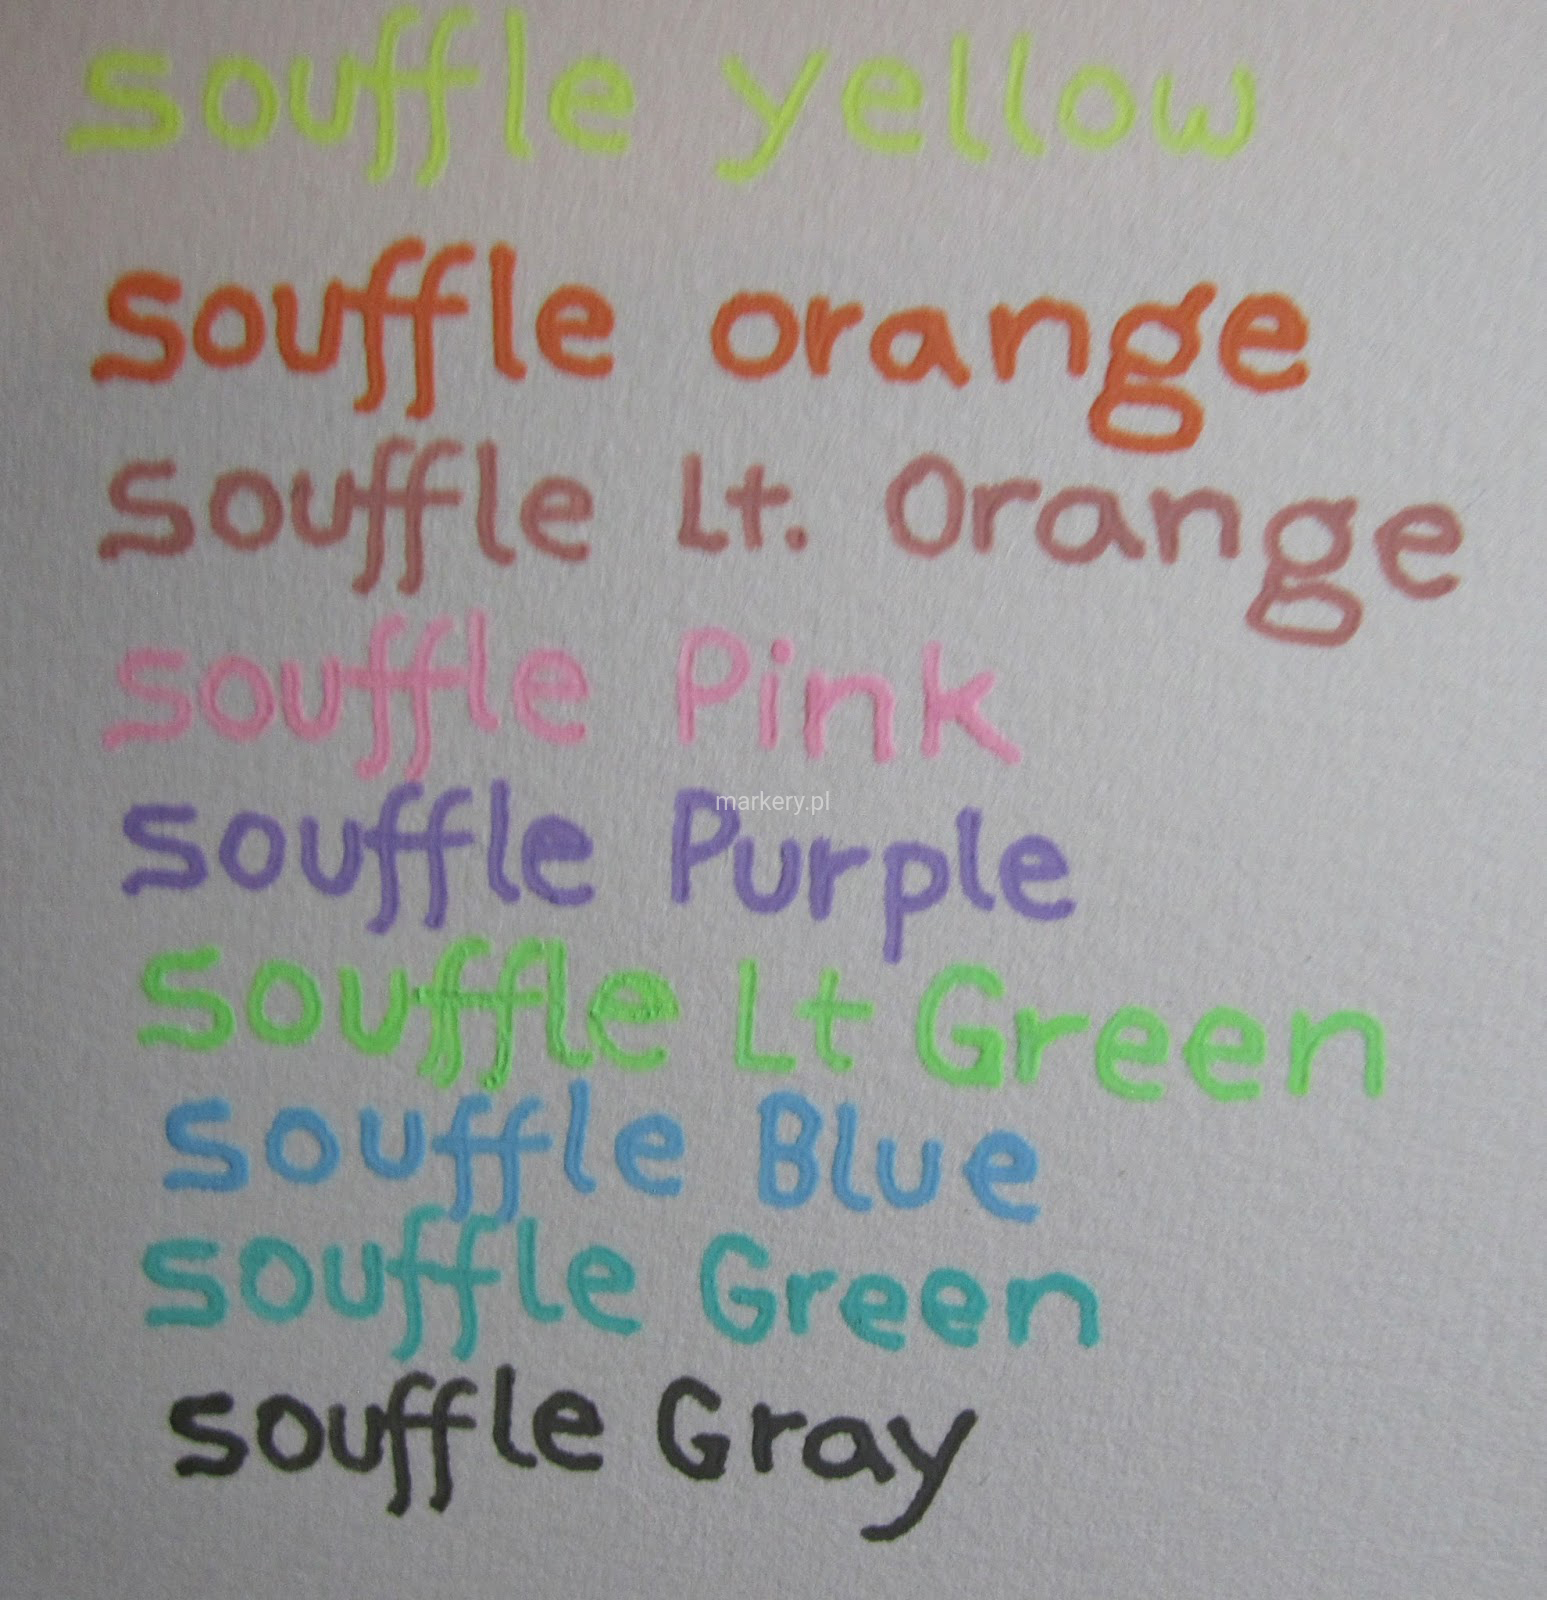 souffle yellow
souffle orange
souffle Lt. Orange
souffle Pink
markery.pl
souffle Purple
souffle Lt Green
souffle Blue
souffle Green
souffle Gray